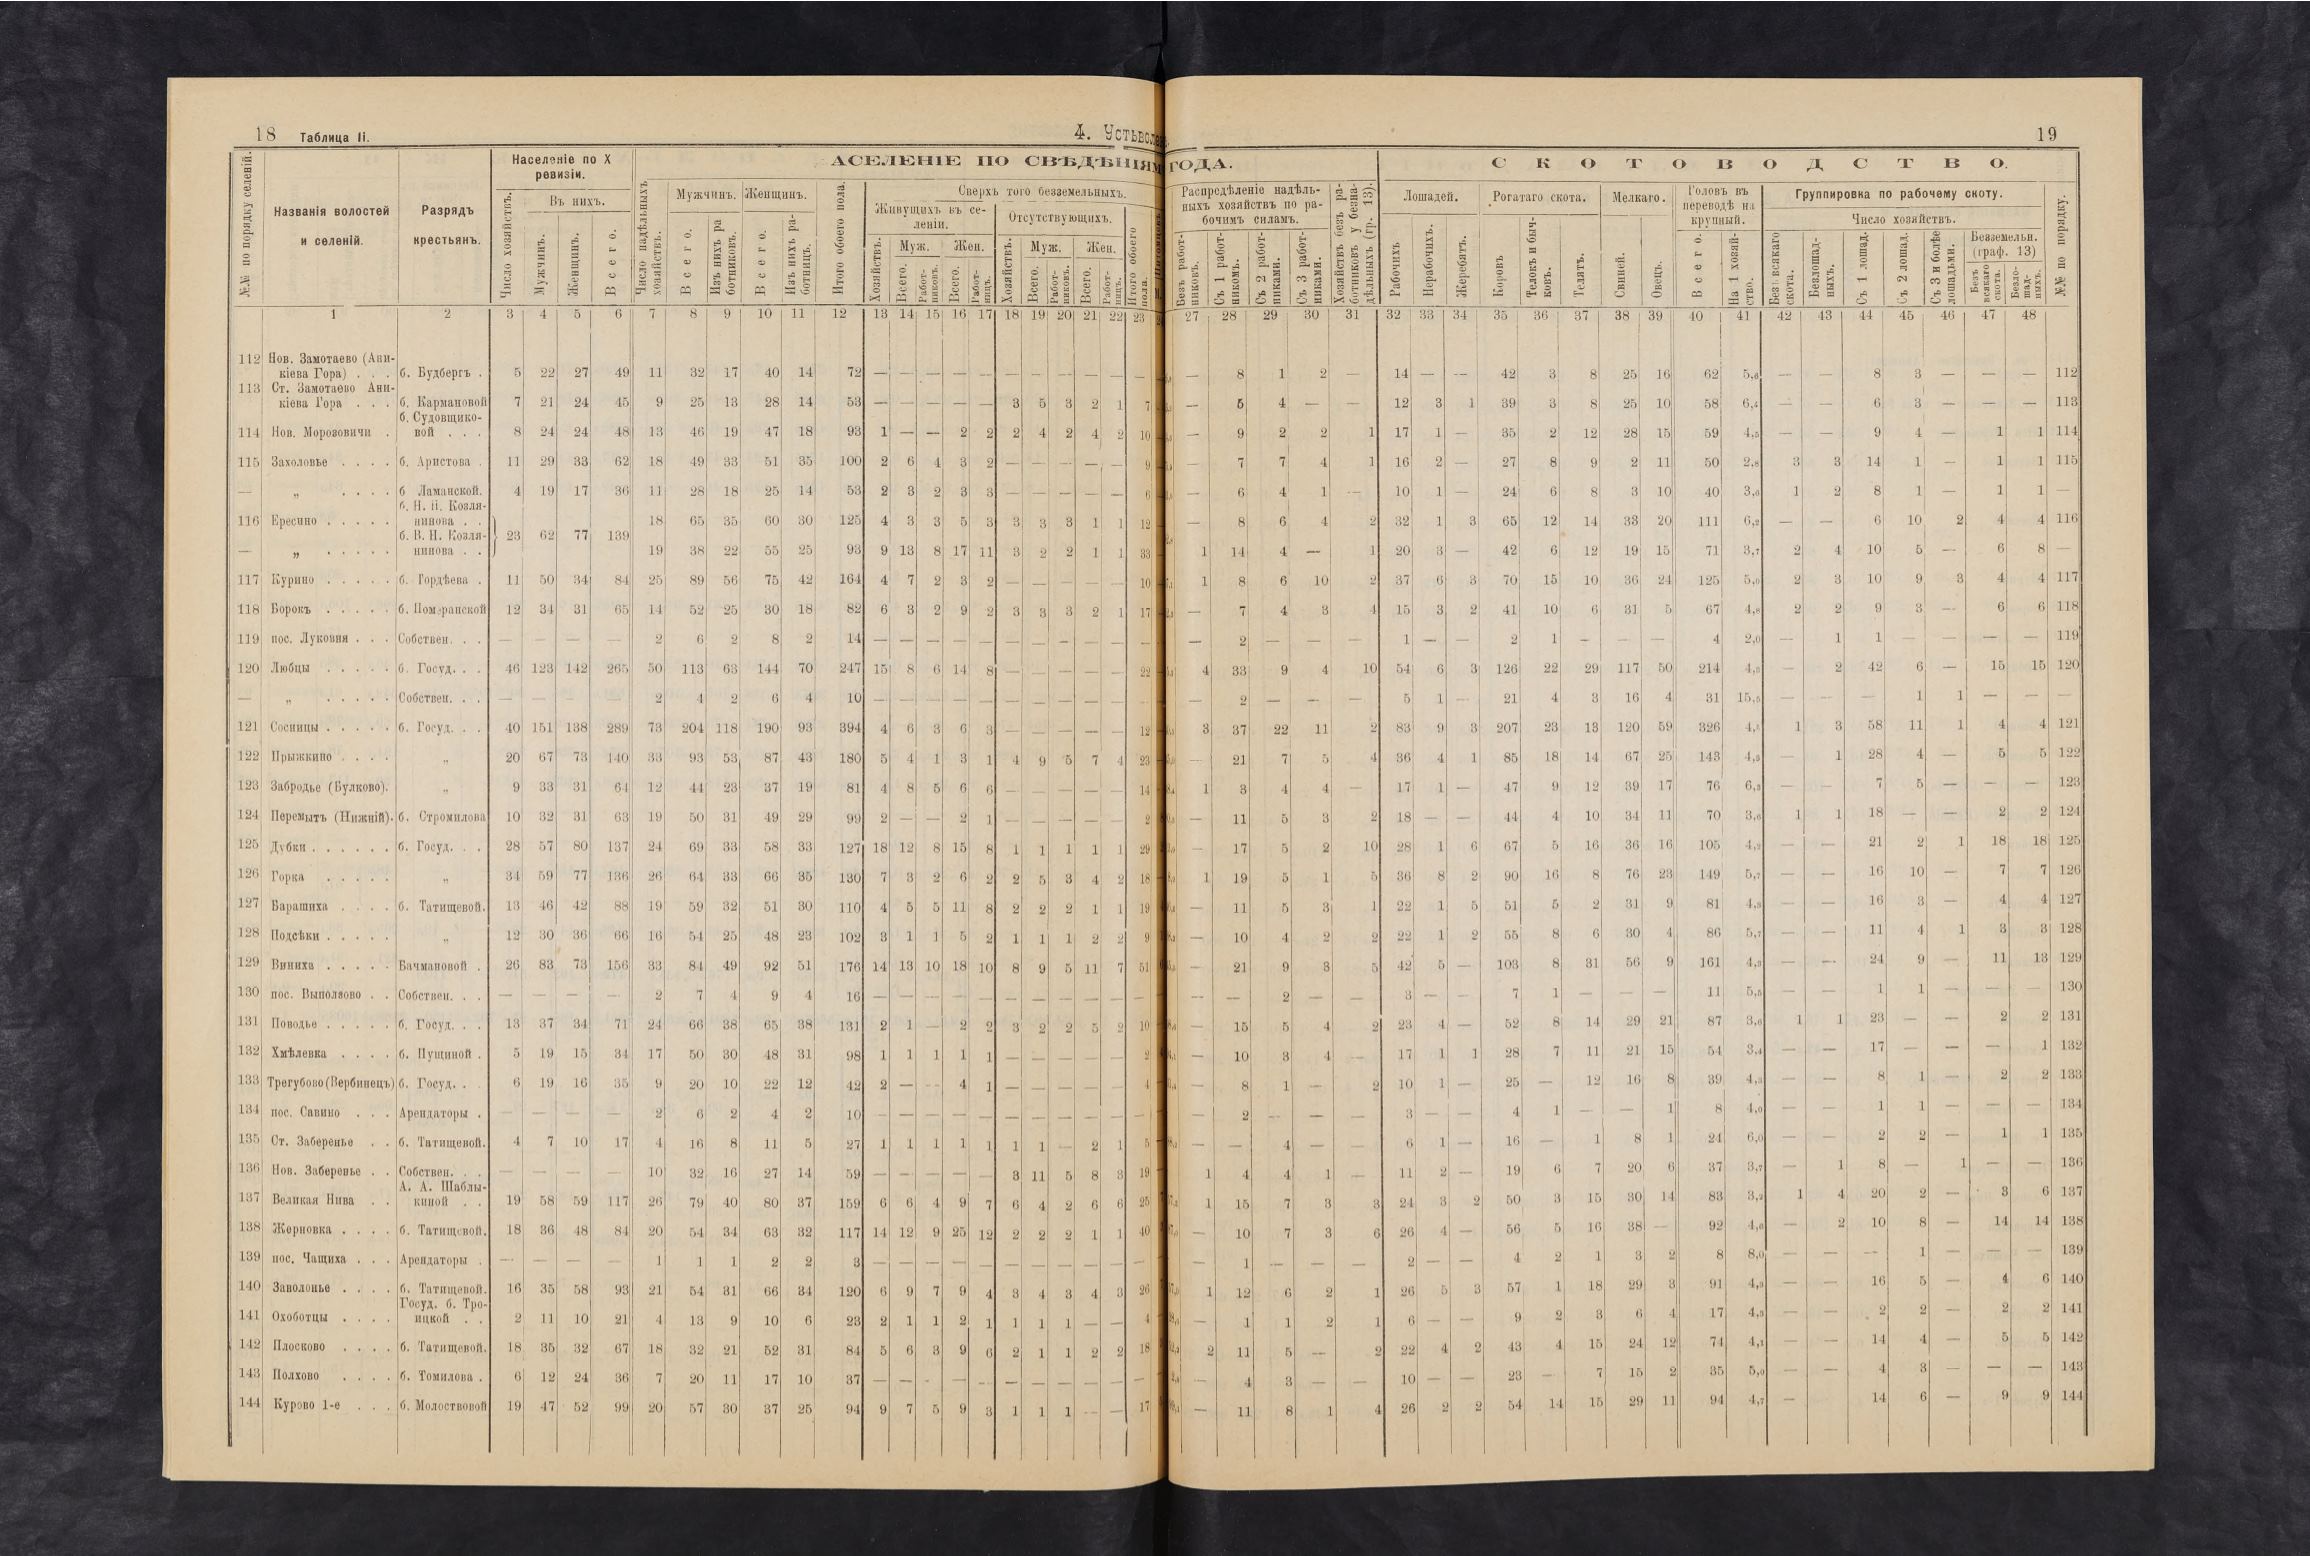 18 Таблица II. 4. Устьволм
19
АСЕЛЕНІЕ ПО СВѢДѢНІЯМ ГОДА.
СКОТОВОДСТВО.
№№ по порядку селеній.
Названія волостей и селеній.
Разрядъ крестьянъ.
Населеніе по X ревизіи.
Число хозяйствъ.
Въ нихъ.
Мужчинъ.
Женщинъ.
Всего.
Число надѣльныхъ хозяйствъ.
Мужчинъ.
Всего.
Изъ нихъ работниковъ.
Женщинъ.
Всего.
Изъ нихъ работницъ.
Итого обоего пола.
Сверхъ того безземельныхъ.
Живущихъ въ селеніи.
Хозяйствъ.
Муж.
Всего.
Работниковъ.
Жен.
Всего.
Работницъ.
Отсутствующихъ.
Хозяйствъ.
Муж.
Всего.
Работниковъ.
Жен.
Всего.
Работницъ.
Итого обоего пола.
Распредѣленіе надѣльныхъ хозяйствъ по рабочимъ силамъ.
Безъ работниковъ.
Съ 1 работникомъ.
Съ 2 работниками.
Съ 3 работниками.
Хозяйствъ безъ работниковъ у безнадѣльныхъ (гр. 13).
Лошадей.
Рабочихъ
Нерабочихъ.
Жеребятъ.
Рогатаго скота.
Коровъ
Телокъ и бычковъ.
Телятъ.
Мелкаго.
Свиней.
Овецъ.
Головъ въ переводѣ на крупный.
Всего.
На 1 хозяйство.
Группировка по рабочему скоту.
Число хозяйствъ.
Безъ всякаго скота.
Безлошадныхъ.
Съ 1 лошад.
Съ 2 лошад.
Съ 3 и болѣе лошадьми.
Безземельн. (граф. 13)
Безъ всякаго скота.
Безлошадныхъ.
№№ по порядку.
1 2 3 4 5 6 7 8 9 10 11 12 13 14 15 16 17 18 19 20 21 22 23 27 28 29 30 31 32 33 34 35 36 37 38 39 40 41 42 43 44 45 46 47 48
112 Нов. Замотаево (Аникіева Гора) . . . б. Будбергъ . 5 22 27 49 11 32 17 40 14 72 — — — — — — — — — — — — 8 1 2 — 14 — — 42 3 8 25 16 62 5,6 — — 8 3 — — — 112
113 Ст. Замотаево Аникіева Гора . . . б. Кармановой 7 21 24 45 9 25 13 28 14 53 — — — — — 3 5 3 2 1 7 — 5 4 — — 12 3 1 39 3 8 25 10 58 6,4 — — 6 3 — — — 113
114 Нов. Морозовичи . б. Судовщиковой . . . 8 24 24 48 13 46 19 47 18 93 1 — — 2 2 2 4 2 4 2 10 — 9 2 2 1 17 1 — 35 2 12 28 15 59 4,5 — — 9 4 — 1 1 114
115 Захоловье . . . . б. Аристова . 11 29 33 62 18 49 33 51 35 100 2 6 4 3 2 — — — — — 9 — 7 7 4 1 16 2 — 27 8 9 2 11 50 2,8 3 3 14 1 — 1 1 115
— „ . . . . б Ламанской. 4 19 17 36 11 28 18 25 14 53 2 3 2 3 3 — — — — — 6 — 6 4 1 — 10 1 — 24 6 8 3 10 40 3,6 1 2 8 1 — 1 1 —
116 Ересино . . . . . б. Н. И. Козлянинова . . 23 62 77 139 18 65 35 60 30 125 4 3 3 5 3 3 3 3 1 1 12 — 8 6 4 2 32 1 3 65 12 14 33 20 111 6,2 — — 6 10 2 4 4 116
— „ . . . . . б. В. Н. Козлянинова . . 19 38 22 55 25 93 9 13 8 17 11 3 2 2 1 1 33 1 14 4 — 1 20 3 — 42 6 12 19 15 71 3,7 2 4 10 5 — 6 8 —
117 Курино . . . . . б. Гордѣева . 11 50 34 84 25 89 56 75 42 164 4 7 2 3 2 — — — — — 10 1 8 6 10 2 37 6 3 70 15 10 36 24 125 5,0 2 3 10 9 3 4 4 117
118 Борокъ . . . . . б. Померанской 12 34 31 65 14 52 25 30 18 82 6 3 2 9 2 3 3 3 2 1 17 — 7 4 3 4 15 3 2 41 10 6 31 5 67 4,8 2 2 9 3 — 6 6 118
119 пос. Луковня . . . Собствен. . . — — — — 2 6 2 8 2 14 — — — — — — — — — — — — 2 — — — 1 — — 2 1 — — — 4 2,0 — 1 1 — — — — 119
120 Любцы . . . . . б. Госуд. . . 46 123 142 265 50 113 63 144 70 247 15 8 6 14 8 — — — — — 22 4 33 9 4 10 54 6 3 126 22 29 117 50 214 4,3 — 2 42 6 — 15 15 120
— „ . . . . . Собствен. . . — — — — 2 4 2 6 4 10 — — — — — — — — — — — — 2 — — — 5 1 — 21 4 3 16 4 31 15,5 — — — 1 1 — — —
121 Сосницы . . . . . б. Госуд. . . 40 151 138 289 73 204 118 190 93 394 4 6 3 6 3 — — — — — 12 3 37 22 11 2 83 9 3 207 23 13 120 59 326 4,5 1 3 58 11 1 4 4 121
122 Прыжкино . . . . „ 20 67 73 140 33 93 53 87 43 180 5 4 1 3 1 4 9 5 7 4 23 — 21 7 5 4 36 4 1 85 18 14 67 25 143 4,3 — 1 28 4 — 5 5 122
123 Забродье (Булково). „ 9 33 31 64 12 44 23 37 19 81 4 8 5 6 6 — — — — — 14 1 3 4 4 — 17 1 — 47 9 12 39 17 76 6,3 — — 7 5 — — — 123
124 Перемытъ (Нижній). б. Стромилова 10 32 31 63 19 50 31 49 29 99 2 — — 2 1 — — — — — 2 — 11 5 3 2 18 — — 44 4 10 34 11 70 3,6 1 1 18 — — 2 2 124
125 Дубки . . . . . . б. Госуд. . . 28 57 80 137 24 69 33 58 33 127 18 12 8 15 8 1 1 1 1 1 29 — 17 5 2 10 28 1 6 67 5 16 36 16 105 4,2 — — 21 2 1 18 18 125
126 Горка . . . . . „ 34 59 77 136 26 64 33 66 35 130 7 3 2 6 2 2 5 3 4 2 18 1 19 5 1 5 36 8 2 90 16 8 76 23 149 5,7 — — 16 10 — 7 7 126
127 Барашиха . . . . б. Татищевой. 13 46 42 88 19 59 32 51 30 110 4 5 5 11 8 2 2 2 1 1 19 — 11 5 3 1 22 1 5 51 5 2 31 9 81 4,3 — — 16 3 — 4 4 127
128 Подсѣки . . . . . „ 12 30 36 66 16 54 25 48 23 102 3 1 1 5 2 1 1 1 2 2 9 — 10 4 2 2 22 1 2 55 8 6 30 4 86 5,7 — — 11 4 1 3 3 128
129 Виниха . . . . . Бачмановой . 26 83 73 156 33 84 49 92 51 176 14 13 10 18 10 8 9 5 11 7 51 — 21 9 3 5 42 5 — 103 8 31 56 9 161 4,9 — — 24 9 — 11 13 129
130 пос. Выползово . . Собствен. . . — — — — 2 7 4 9 4 16 — — — — — — — — — — — — — 2 — — 3 — — 7 1 — — — 11 5,5 — — 1 1 — — — 130
131 Поводье . . . . . б. Госуд. . . 13 37 34 71 24 66 38 65 38 131 2 1 — 2 2 3 2 2 5 2 10 — 15 5 4 2 23 4 — 52 8 14 29 21 87 3,6 1 1 23 — — 2 2 131
132 Хмѣлевка . . . . б. Пущиной . 5 19 15 34 17 50 30 48 31 98 1 1 1 1 1 — — — — — 2 — 10 3 4 — 17 1 1 28 7 11 21 15 54 3,4 — — 17 — — — 1 132
133 Трегубово (Вербинецъ) б. Госуд. . . 6 19 16 35 9 20 10 22 12 42 2 — — 4 1 — — — — — 4 — 8 1 — 2 10 1 — 25 — 12 16 8 39 4,3 — — 8 1 — 2 2 133
134 пос. Савино . . . Арендаторы . — — — — 2 6 2 4 2 10 — — — — — — — — — — — — 2 — — — 3 — — 4 1 — — 1 8 4,0 — — 1 1 — — — 134
135 Ст. Заберенье . . б. Татищевой. 4 7 10 17 4 16 8 11 5 27 1 1 1 1 1 1 1 — 2 1 5 — — 4 — — 6 1 — 16 — 1 8 1 24 6,0 — — 2 2 — 1 1 135
136 Нов. Заберенье . . Собствен. . . — — — — 10 32 16 27 14 59 — — — — — 3 11 5 8 3 19 1 4 4 1 — 11 2 — 19 6 7 20 6 37 3,7 — 1 8 — 1 — — 136
137 Великая Нива . . А. А. Шаблыкиной . . 19 58 59 117 26 79 40 80 37 159 6 6 4 9 7 6 4 2 6 6 25 1 15 7 3 3 24 3 2 50 3 15 30 14 83 3,2 1 4 20 2 — 3 6 137
138 Жерновка . . . . б. Татищевой. 18 36 48 84 20 54 34 63 32 117 14 12 9 25 12 2 2 2 1 1 40 — 10 7 3 6 26 4 — 56 5 16 38 — 92 4,6 — 2 10 8 — 14 14 138
139 пос. Чащиха . . . Арендаторы . — — — — 1 1 1 2 2 3 — — — — — — — — — — — — 1 — — — 2 — — 4 2 1 3 2 8 8,0 — — — 1 — — — 139
140 Заволонье . . . . б. Татищевой. 16 35 58 93 21 54 31 66 34 120 6 9 7 9 4 3 4 3 4 3 26 1 12 6 2 1 26 5 3 57 1 18 29 3 91 4,3 — — 16 5 — 4 6 140
141 Охоботцы . . . . Госуд. б. Троицкой . . 2 11 10 21 4 13 9 10 6 23 2 1 1 2 1 1 1 1 — — 4 — 1 1 2 1 6 — — 9 2 3 6 4 17 4,3 — — 2 2 — 2 2 141
142 Плосково . . . . б. Татищевой. 18 35 32 67 18 32 21 52 31 84 5 6 3 9 6 2 1 1 2 2 18 2 11 5 — 2 22 4 2 43 4 15 24 12 74 4,1 — — 14 4 — 5 5 142
143 Полхово . . . . б. Томилова . 6 12 24 36 7 20 11 17 10 37 — — — — — — — — — — — — 4 3 — — 10 — — 23 — 7 15 2 35 5,0 — — 4 3 — — — 143
144 Курово 1-е . . . б. Молоствовой 19 47 52 99 20 57 30 37 25 94 9 7 5 9 3 1 1 1 — — 17 — 11 8 1 4 26 2 2 54 14 15 29 11 94 4,7 — 14 6 — 9 9 144